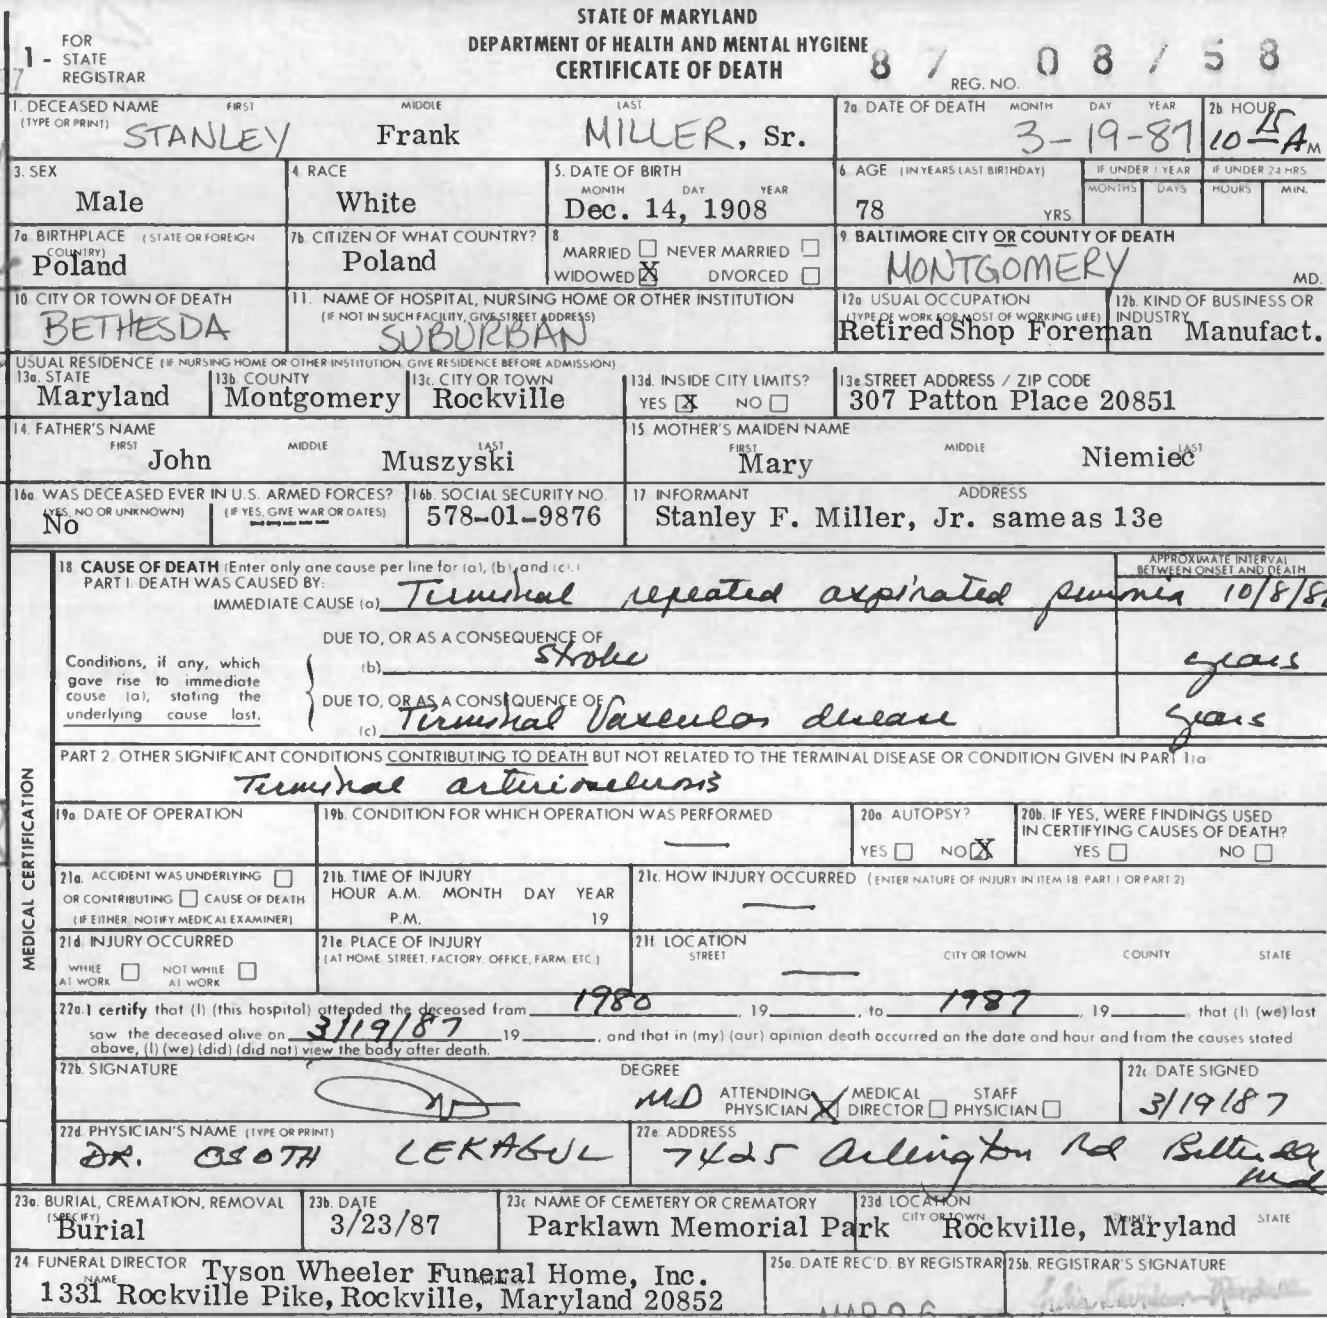 STATE OF MARYLAND
DEPARTMENT OF HEALTH AND MENTAL HYGIENE
CERTIFICATE OF DEATH
1 - FOR STATE REGISTRAR
REG. NO. 87 08158
1. DECEASED NAME (TYPE OR PRINT) FIRST MIDDLE LAST
STANLEY Frank MILLER, Sr.
2a. DATE OF DEATH MONTH DAY YEAR
3-19-87
2b. HOUR
10 15 A M
3. SEX
Male
4. RACE
White
5. DATE OF BIRTH MONTH DAY YEAR
Dec. 14, 1908
6. AGE (IN YEARS LAST BIRTHDAY)
78 YRS.
IF UNDER 1 YEAR MONTHS DAYS
IF UNDER 24 HRS HOURS MIN.
7a. BIRTHPLACE (STATE OR FOREIGN COUNTRY)
Poland
7b. CITIZEN OF WHAT COUNTRY?
Poland
8. MARRIED NEVER MARRIED
WIDOWED X DIVORCED
9. BALTIMORE CITY OR COUNTY OF DEATH
MONTGOMERY MD.
10. CITY OR TOWN OF DEATH
BETHESDA
11. NAME OF HOSPITAL, NURSING HOME OR OTHER INSTITUTION
(IF NOT IN SUCH FACILITY, GIVE STREET ADDRESS)
SUBURBAN
12a. USUAL OCCUPATION
(TYPE OF WORK FOR MOST OF WORKING LIFE)
Retired Shop Foreman
12b. KIND OF BUSINESS OR INDUSTRY
Manufact.
USUAL RESIDENCE (IF NURSING HOME OR OTHER INSTITUTION, GIVE RESIDENCE BEFORE ADMISSION)
13a. STATE
Maryland
13b. COUNTY
Montgomery
13c. CITY OR TOWN
Rockville
13d. INSIDE CITY LIMITS?
YES X NO
13e. STREET ADDRESS / ZIP CODE
307 Patton Place 20851
14. FATHER'S NAME FIRST MIDDLE LAST
John Muszyski
15. MOTHER'S MAIDEN NAME FIRST MIDDLE LAST
Mary Niemiec
16a. WAS DECEASED EVER IN U.S. ARMED FORCES?
(YES, NO OR UNKNOWN) (IF YES, GIVE WAR OR DATES)
No -----
16b. SOCIAL SECURITY NO.
578-01-9876
17. INFORMANT ADDRESS
Stanley F. Miller, Jr. same as 13e
MEDICAL CERTIFICATION
18. CAUSE OF DEATH (Enter only one cause per line for (a), (b), and (c).)
APPROXIMATE INTERVAL BETWEEN ONSET AND DEATH
PART I. DEATH WAS CAUSED BY:
IMMEDIATE CAUSE (a) Terminal repeated aspirated
Conditions, if any, which gave rise to immediate cause (a), stating the underlying cause last.
DUE TO, OR AS A CONSEQUENCE OF
(b) Stroke years
DUE TO, OR AS A CONSEQUENCE OF
(c) Terminal Vascular disease years
PART 2. OTHER SIGNIFICANT CONDITIONS CONTRIBUTING TO DEATH BUT NOT RELATED TO THE TERMINAL DISEASE OR CONDITION GIVEN IN PART 1(a)
Terminal arteriosclerosis
19a. DATE OF OPERATION
19b. CONDITION FOR WHICH OPERATION WAS PERFORMED
—
20a. AUTOPSY?
YES NO X
20b. IF YES, WERE FINDINGS USED IN CERTIFYING CAUSES OF DEATH?
YES NO
21a. ACCIDENT WAS UNDERLYING
OR CONTRIBUTING CAUSE OF DEATH
(IF EITHER, NOTIFY MEDICAL EXAMINER)
21b. TIME OF INJURY
HOUR A.M. MONTH DAY YEAR
P.M. 19
21c. HOW INJURY OCCURRED (ENTER NATURE OF INJURY IN ITEM 18 PART 1 OR PART 2)
—
21d. INJURY OCCURRED
WHILE AT WORK NOT WHILE AT WORK
21e. PLACE OF INJURY
(AT HOME, STREET, FACTORY, OFFICE, FARM, ETC.)
21f. LOCATION STREET CITY OR TOWN COUNTY STATE
—
22a. I certify that (I) (this hospital) attended the deceased from 1980, 19 , to 1987, 19 , that (I) (we) last
saw the deceased alive on 3/19/87 19 , and that in (my) (our) opinion death occurred on the date and hour and from the causes stated
above, (I) (we) (did) (did not) view the body after death.
22b. SIGNATURE
DEGREE
MD ATTENDING PHYSICIAN X MEDICAL DIRECTOR STAFF PHYSICIAN
22c. DATE SIGNED
3/19/87
22d. PHYSICIAN'S NAME (TYPE OR PRINT)
DR. OSOTH LEKAGUL
22e. ADDRESS
7425 Arlington Rd Bethesda Md
23a. BURIAL, CREMATION, REMOVAL (SPECIFY)
Burial
23b. DATE
3/23/87
23c. NAME OF CEMETERY OR CREMATORY
Parklawn Memorial Park
23d. LOCATION CITY OR TOWN COUNTY STATE
Rockville, Maryland
24. FUNERAL DIRECTOR NAME
Tyson Wheeler Funeral Home, Inc.
1331 Rockville Pike, Rockville, Maryland 20852
25a. DATE REC'D. BY REGISTRAR
25b. REGISTRAR'S SIGNATURE